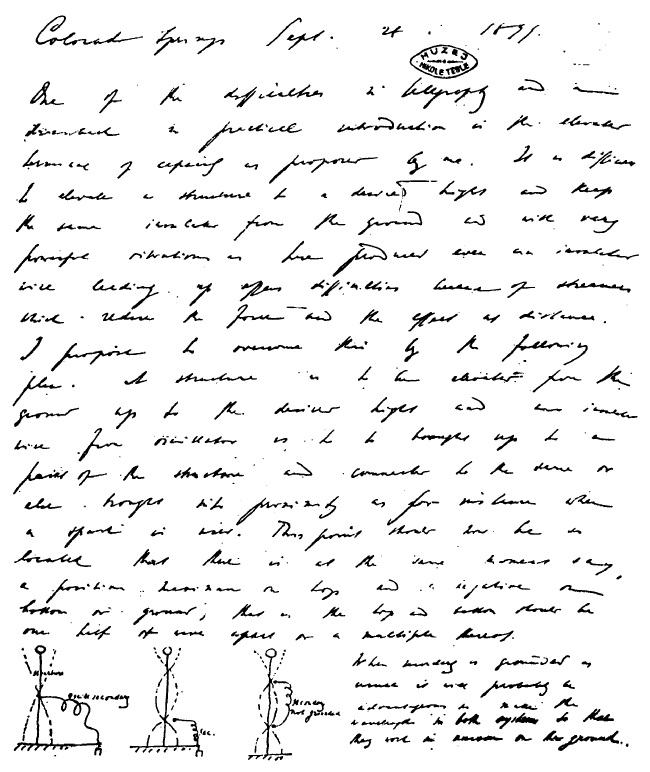 Colorado Springs Sept. 28 1899.
MUZEJ
NIKOLE TESLE
One of the difficulties in telegraphy and
in practical introduction is the elevated
terminal of capacity as proposed by me. It is difficult
to elevate a structure to a desired height and keep
the same insulated from the ground and with very
powerful vibrations as here produced even an insulated
wire leading up offers difficulties because of streamers
which reduce the force and the effect at distance.
I propose to overcome this by the following
plan. A structure is to be elevated from the
ground up to the desired height and an insulated
wire from oscillator is to be brought up to a
point of the structure and connected to the same or
else brought into proximity as for instance when
a spark is used. This point should now be so
located that there is at the same moment say,
a positive maximum on top and a negative on
bottom or ground, that is the top and bottom should be
one half of wave apart or a multiple thereof.
structure
secondary
sec.
secondary
not grounded
When secondary is grounded as
usual it will probably be
advantageous to make the
wavelength in both systems so that
they work in unison on the ground..